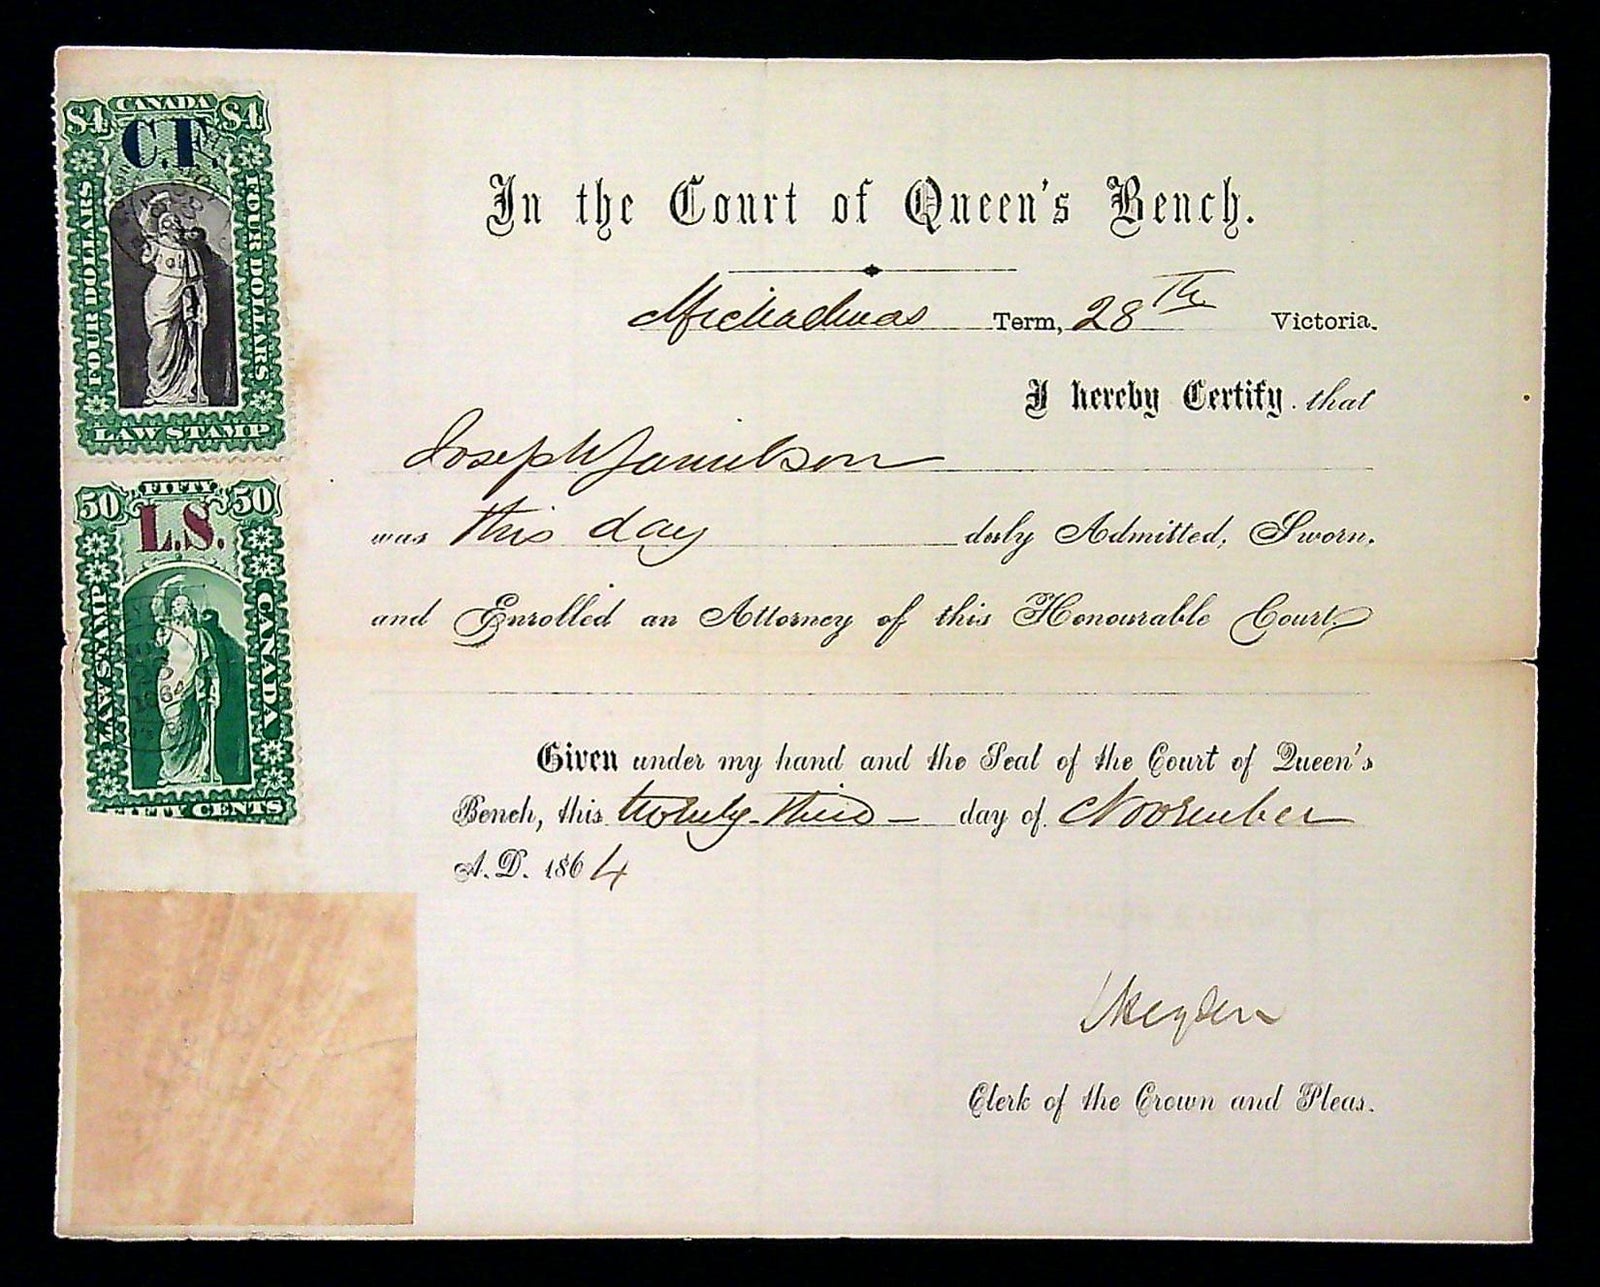 $4 CANADA $4
C.F.
FOUR DOLLARS
FOUR DOLLARS
LAW STAMP
50 FIFTY 50
L.S.
LAW STAMP
CANADA
1864
FIFTY CENTS
In the Court of Queen's Bench.
Michaelmas Term, 28th Victoria.
I hereby Certify that
Joseph Jamieson
was this day duly Admitted, Sworn.
and Enrolled an Attorney of this Honourable Court.
Given under my hand and the Seal of the Court of Queen's
Bench, this twenty-third day of November
A.D. 1864
Clerk of the Crown and Pleas.